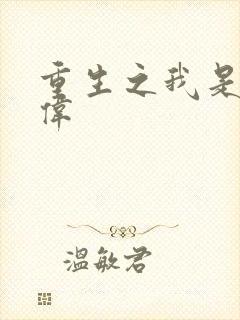 重生之我是
偉
溫敏君